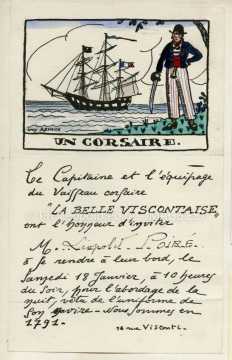 GUY ARNOUX
UN CORSAIRE.
Le Capitaine et l'équipage
du Vaisseau corsaire
"LA BELLE VISCONTAISE"
ont l'honneur d'inviter
M. Léopold
à se rendre à leur bord, le
Samedi 18 Janvier, à 10 heures
du soir, pour l'abordage de la
nuit, vêtu de l'uniforme de
son navire. Nous sommes en
1791.
10 rue Visconti.